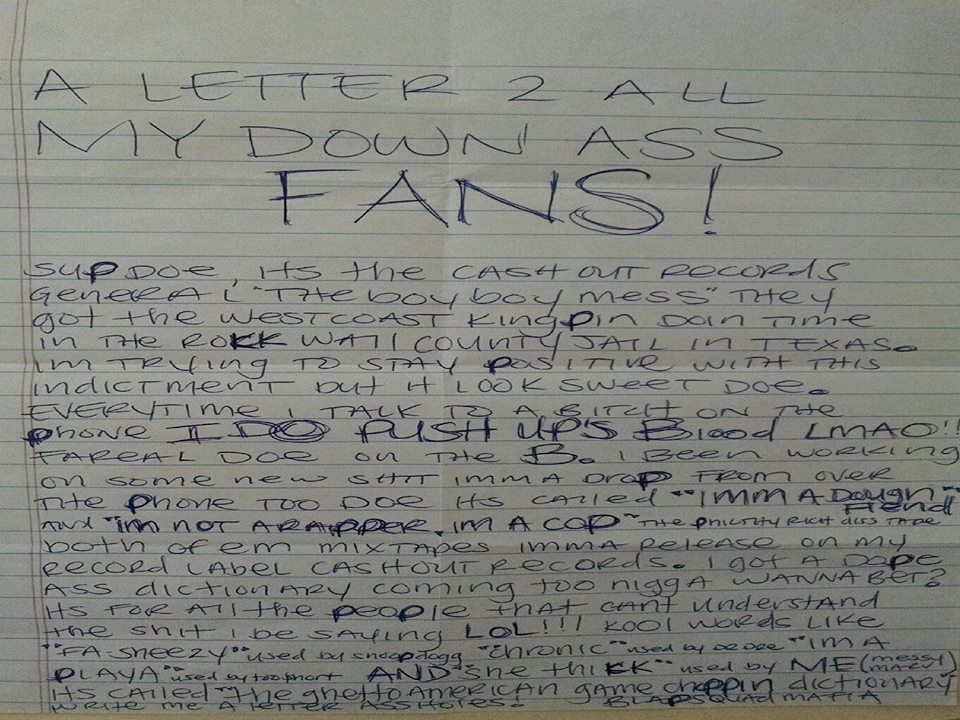 A LETTER 2 ALL
MY DOWN ASS
FANS!
SUP DOE, ITS the CASH OUT RECORDS
GENERAL "THE boy boy mess" THEY
got the WESTCOAST KINGPIN DOIN TIME
IN THE ROKK WALL COUNTY JAIL IN TEXAS.
IM TRYING TO STAY POSITIVE WITH THIS
INDICTMENT but it LOOK SWEET DOE.
EVERYTIME I TALK TO A BITCH ON THE
phone I DO PUSH UP'S Blood LMAO!!
FAREAL DOE ON THE B. I BEEN WORKING
ON SOME NEW SHIT IMMA DROP FROM OVER
THE phone TOO DOE ITS CALLED "IMMA Dough
Fiend"
AND "im NOT A RAPPER IM A COP" THE PHILTHY RICH DISS TAPE
both of em MIXTAPES IMMA RELEASE ON MY
RECORD LABEL CASHOUT RECORDS. I GOT A DOPE
ASS dictionary coming TOO nigga WANNA BET?
ITS FOR All the people that CAN'T understand
the shit i be saying LOL!!! KOOL WORDS LIKE
"FA SHEEZY" used by snoop dogg "chronic" used by DR DRE "IM A
PLAYA" used by too short AND "SHE THIKK" used by ME (messy
marv)
ITS CALLED "The ghetto AMERICAN game choppin dictionary
WRITE ME A LETTER ASSHOLES. BLAPSQUAD MAFIA